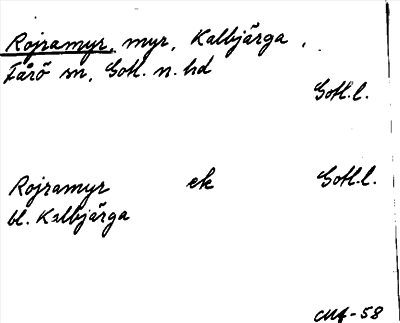 Rojramyr, myr, Kalbjärga,
Fårö sn, Gotl. n. hd
Gotl. l.
Rojramyr ek Gotl. l.
bl. Kalbjärga
-58